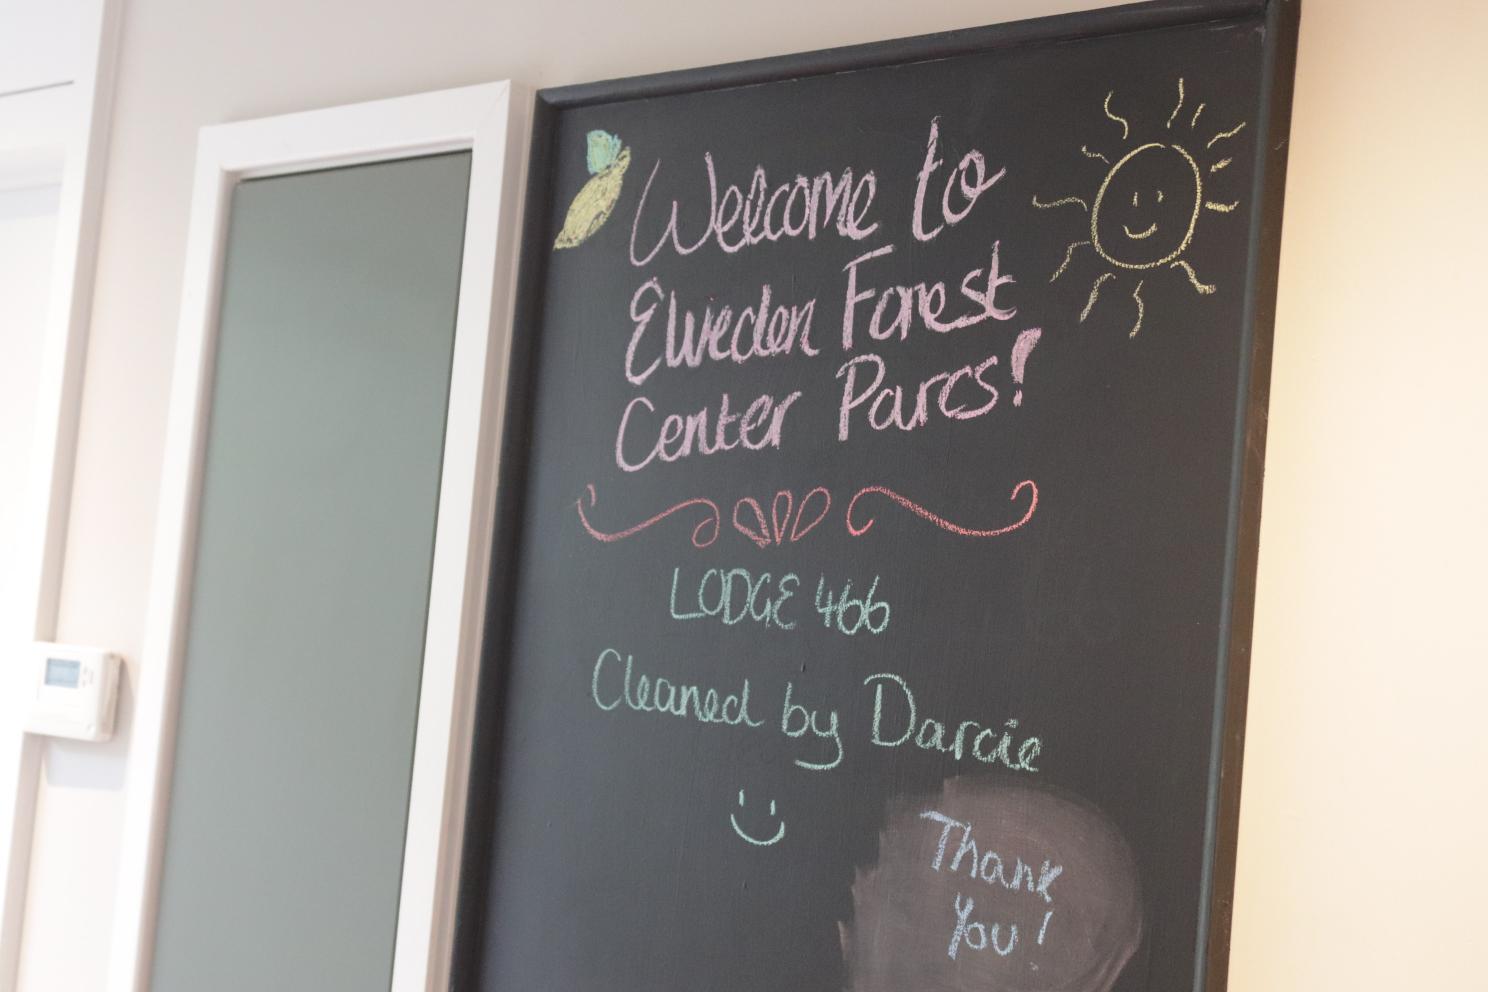 Welcome to
Elveden Forest
Center Parcs!
LODGE 466
Cleaned by Darcie
Thank
You!